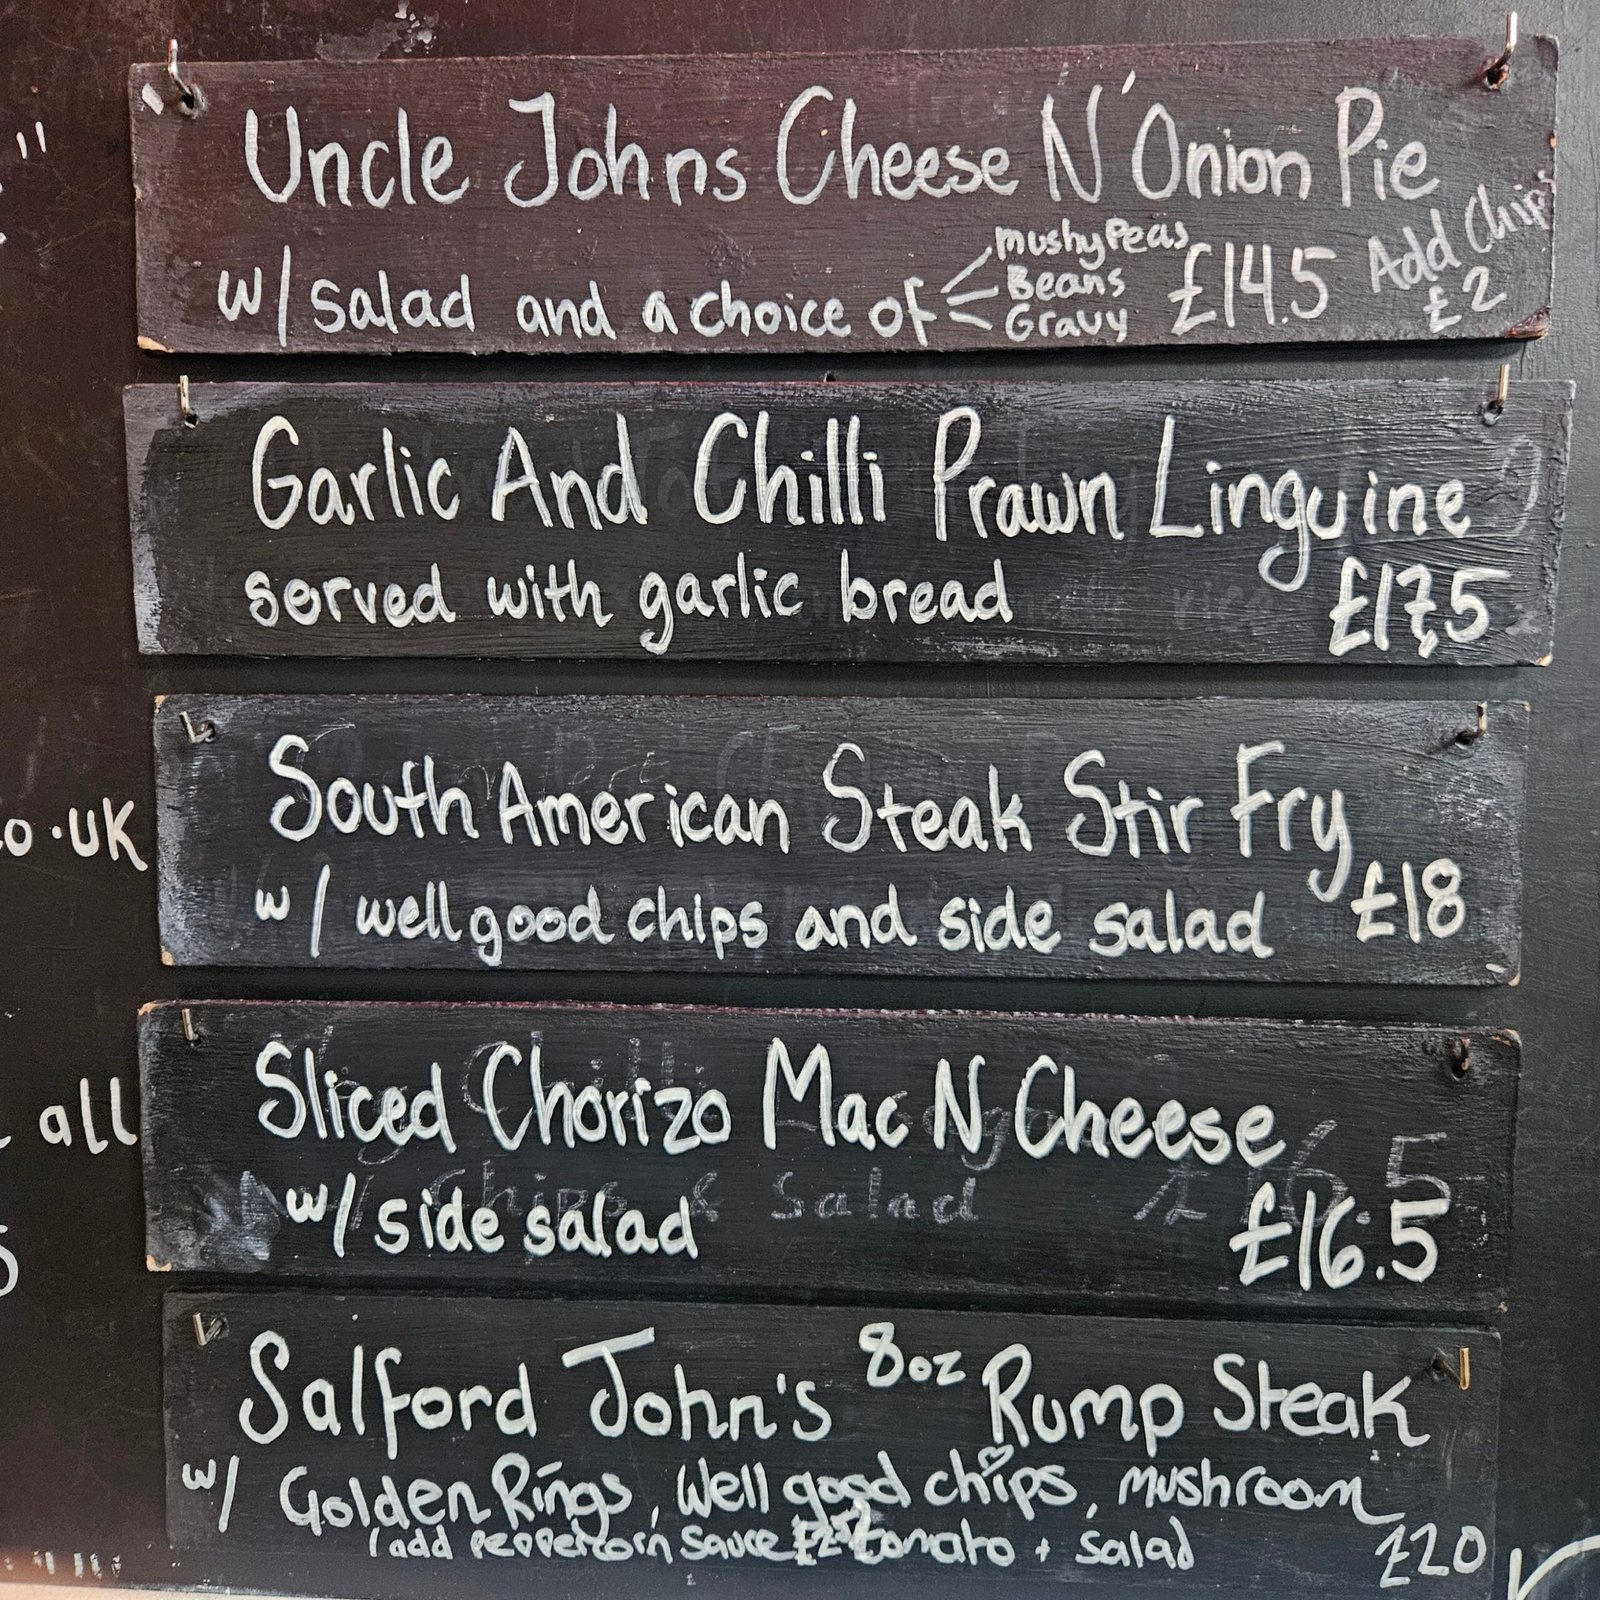 Uncle Johns Cheese N' Onion Pie
w/ salad and a choice of Mushy Peas Beans Gravy £14.5 Add Chips £2
Garlic And Chilli Prawn Linguine
served with garlic bread £17.5
South American Steak Stir Fry
w/ well good chips and side salad £18
Sliced Chorizo Mac N Cheese
w/ side salad £16.5
Salford John's 8oz Rump Steak
w/ Golden Rings, Well good chips, mushroom
/add peppercorn sauce tomato + salad £20
co.uk
all